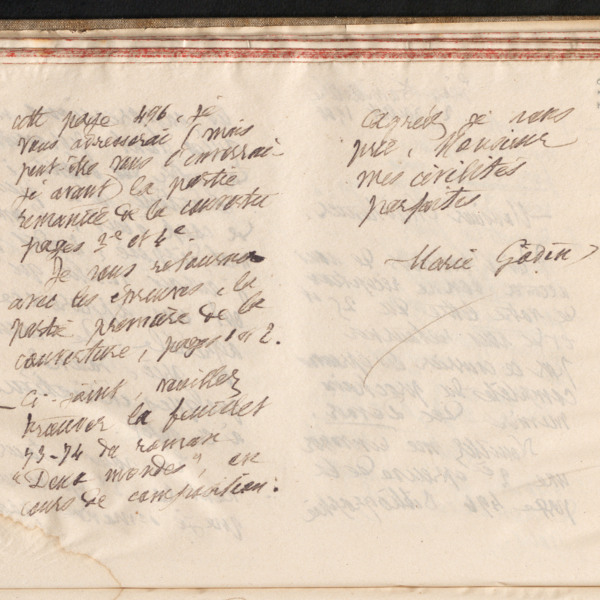 cette page 496, je
vous adresserai (mais
peut-être vous l'enverrai-
je avant) la partie
remaniée de la couverture
pages 3e et 4e.
Je vous retourne
avec les épreuves, la
partie première de la
couverture, pages 1 et 2.
— Ci-joint, veuillez
trouver le feuillet
73-74 du roman
"Deux mondes", en
cours de composition.
Agréez, je vous
prie, Monsieur
mes civilités
parfaites
Marie Godin